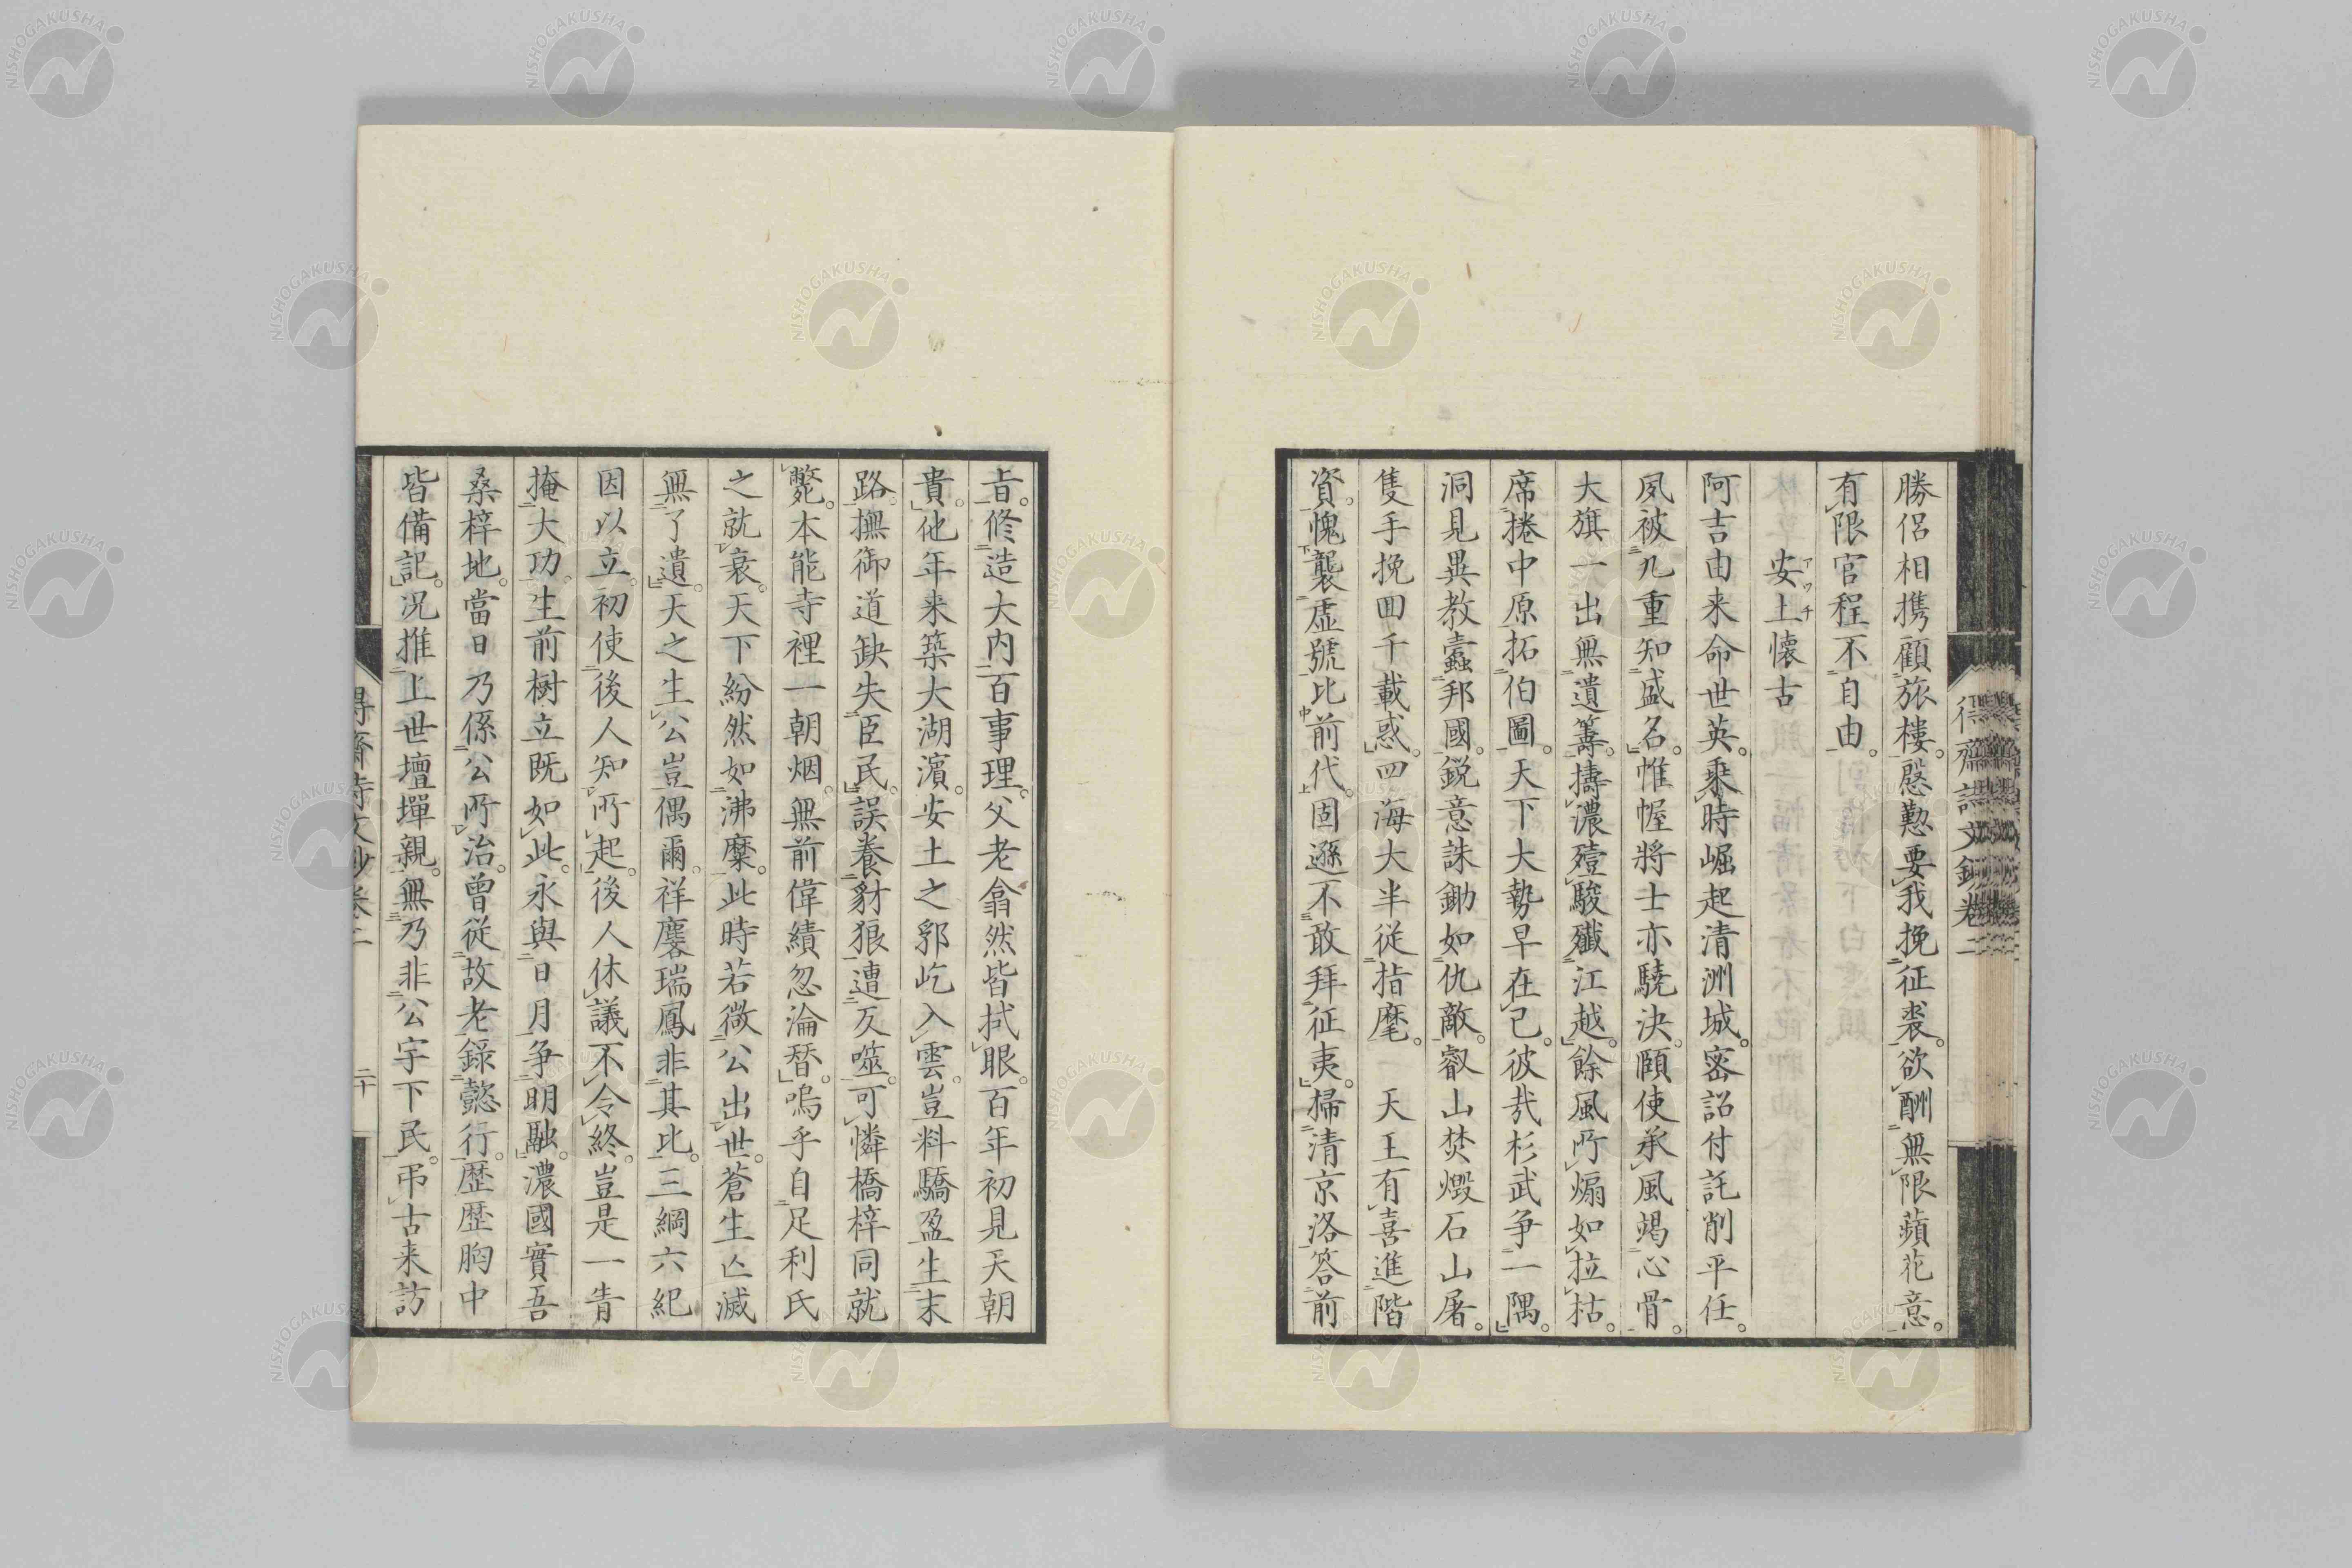 勝侶相携顧旅樓。慇懃要我挽征裘。欲酬無限蘋花意。
有限官程不自由。
安土懐古
阿吉由来命世英。乘時崛起清洲城。密詔付託削平任。
夙被九重知盛名。帷幄將士亦驍決。頤使承風竭心骨。
大旗一出無遺籌。擣濃殪駿殲江越。餘風所煽如拉枯。
席捲中原拓伯圖。天下大勢早在已。彼哉杉武争一隅。
洞見異教蠹邦國。鋭意誅鋤如仇敵。叡山焚燬石山屠。
隻手挽回千載惑。四海大半従指麾。天王有喜進階
資。愧襲虚號比前代。固遜不敢拜征夷。掃清京洛答前
㫖。修造大内百事理。父老翕然皆拭眼。百年初見天朝
貴。他年来築大湖濵。安土之郛屹入雲。豈料驕盈生末
路。撫御道缺失臣民。誤養豺狼遭反噬。可憐橋梓同就
斃。本能寺裡一朝烟。無前偉績忽淪朁。嗚乎自足利氏
之就衰。天下紛然如沸糜。此時若微公出世。蒼生亾滅
無了遺。天之生公豈偶爾。祥麐瑞鳳非其比。三綱六紀
因以立。初使後人知所起。後人休議不令終。豈是一眚
掩大功。生前樹立既如此。永與日月争明融。濃國實吾
桑梓地。當日乃係公所治。曾從故老錄懿行。歴歴胸中
皆備記。况推上世壇墠親。無乃非公宇下民。弔古来訪
得齋詩文鈔卷二
二十
NISHOGAKUSHA